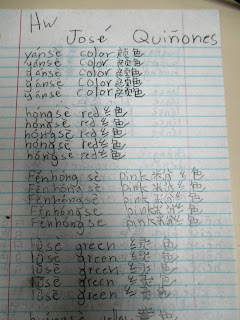 HW
José Quiñones
yánsè color 颜色
yánsè color 颜色
yánsè color 颜色
yánsè color 颜色
yánsè color 颜色
hóngsè red 红色
hóngsè red 红色
hóngsè red 红色
hóngsè red 红色
hóngsè red 红色
Fěnhóngsè pink 粉红色
Fěnhóngsè pink 粉红色
Fěnhóngsè pink 粉红色
Fěnhóngsè pink 粉红色
Fěnhóngsè pink 粉红色
lǜsè green 绿色
lǜsè green 绿色
lǜsè green 绿色
lǜsè green 绿色
lǜsè green 绿色